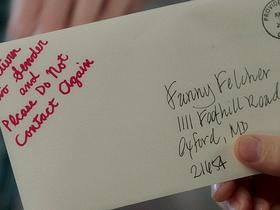 Return
To Sender
and
Please Do Not
Contact Again
PROVID
Fanny Felcher
1111 Foothill Road
Oxford, MD
21654